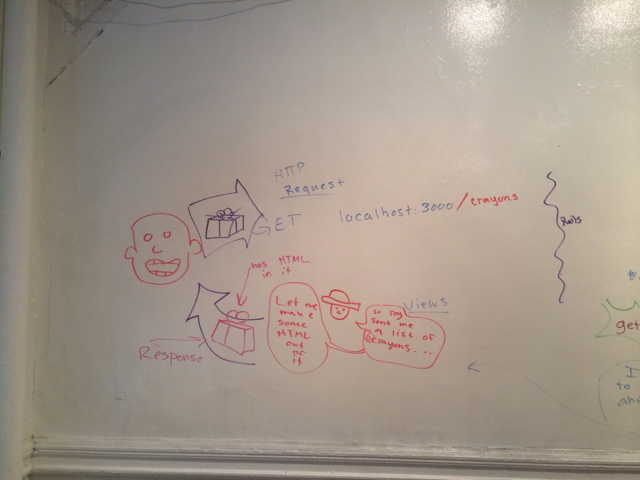 HTTP
Request
GET localhost:3000/crayons
Rails
has HTML
in it
Views
Let me
make
some
HTML
out
of
it
so ray
sent me
a list of
@crayons...
Response
get
I
to